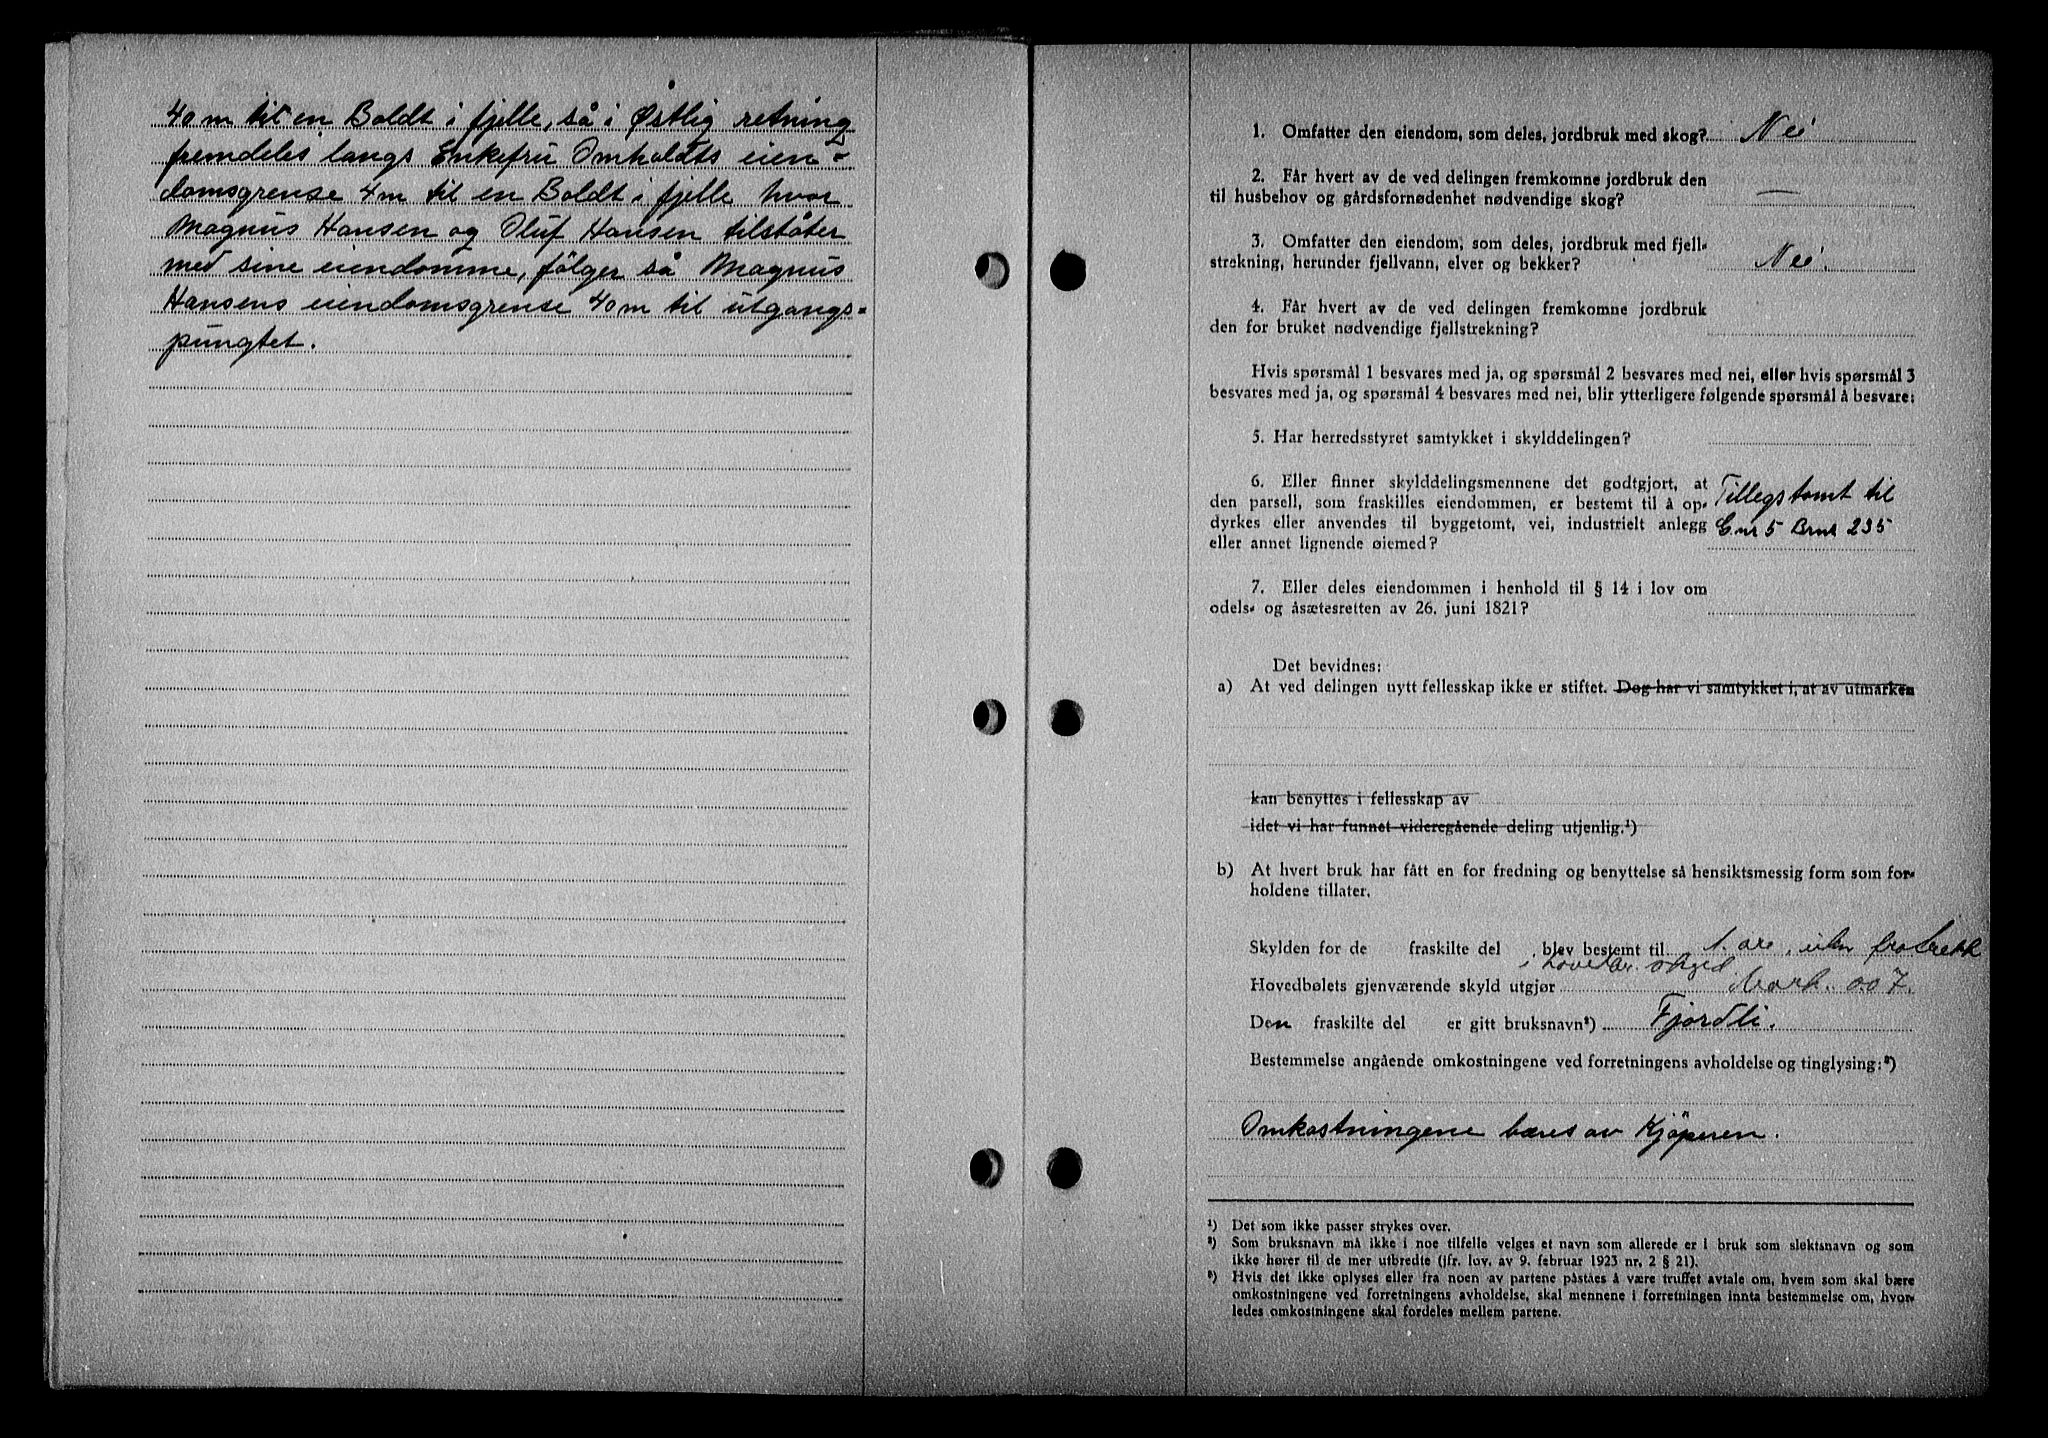 40 m til en Boldt i fjelle, så i Østlig retning
fremdeles langs Enkefru Omholdts eien-
domsgrense 4 m til en Boldt i fjelle hvor
Magnus Hansen og Oluf Hansen tilståter
med sine eiendomme, følger så Magnus
Hansens eiendomsgrense 40 m til utgangs-
pungtet.
1. Omfatter den eiendom, som deles, jordbruk med skog? Nei
2. Får hvert av de ved delingen fremkomne jordbruk den
til husbehov og gårdsfornødenhet nødvendige skog? —
3. Omfatter den eiendom, som deles, jordbruk med fjell-
strekning, herunder fjellvann, elver og bekker? Nei.
4. Får hvert av de ved delingen fremkomne jordbruk
den for bruket nødvendige fjellstrekning?
Hvis spørsmål 1 besvares med ja, og spørsmål 2 besvares med nei, eller hvis spørsmål 3
besvares med ja, og spørsmål 4 besvares med nei, blir ytterligere følgende spørsmål å besvare:
5. Har herredsstyret samtykket i skylddelingen?
6. Eller finner skylddelingsmennene det godtgjort, at
den parsell, som fraskilles eiendommen, er bestemt til å op-
dyrkes eller anvendes til byggetomt, vei, industrielt anlegg
eller annet lignende øiemed?
Tillegstomt til
Gnr 5 Brnr 235
7. Eller deles eiendommen i henhold til § 14 i lov om
odels- og åsætesretten av 26. juni 1821?
Det bevidnes:
a) At ved delingen nytt fellesskap ikke er stiftet. Dog har vi samtykket i, at av utmarken
kan benyttes i fellesskap av
idet vi har funnet videregående deling utjenlig.¹)
b) At hvert bruk har fått en for fredning og benyttelse så hensiktsmessig form som for-
holdene tillater.
Skylden for de fraskilte del blev bestemt til 1 øre, uten fratrekk
i hovedbr. skyld
Hovedbølets gjenværende skyld utgjør Mark. 007.
Den fraskilte del er gitt bruksnavn²) Fjordli.
Bestemmelse angående omkostningene ved forretningens avholdelse og tinglysing:³)
Omkostningene bæres av Kjøperen.
¹) Det som ikke passer strykes over.
²) Som bruksnavn må ikke i noe tilfelle velges et navn som allerede er i bruk som slektsnavn og som
ikke hører til de mer utbredte (jfr. lov. av 9. februar 1923 nr. 2 § 21).
³) Hvis det ikke oplyses eller fra noen av partene påståes å være truffet avtale om, hvem som skal bære
omkostningene ved forretningens avholdelse, skal mennene i forretningen innta bestemmelse om, hvor-
ledes omkostningene skal fordeles mellem partene.